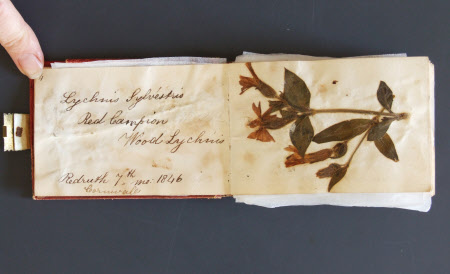 Lychnis Sylvestris
Red Campion
Wood Lychnis
Redruth 7th mo. 1846
Cornwall